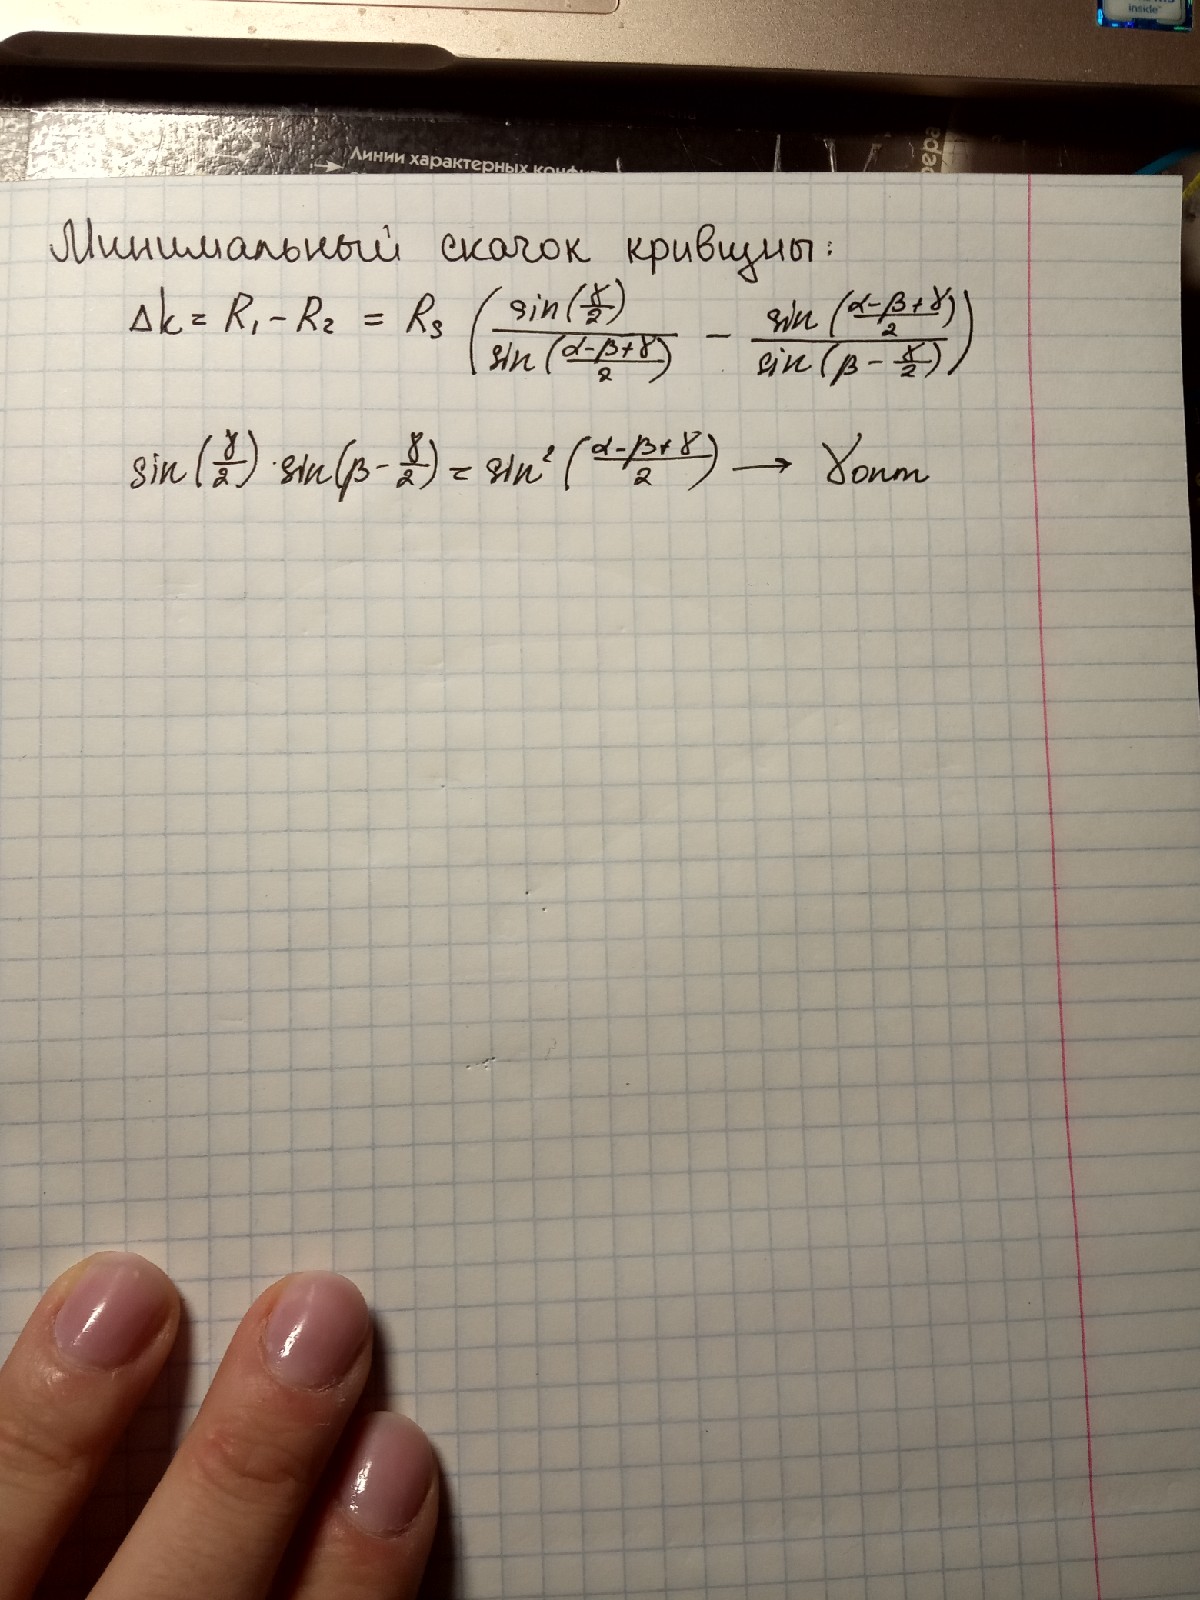 inside
Линии характерных
Минимальный скачок кривизны:
Δk = R₁ - R₂ = R₃ (sin(γ/2)/sin((α-β+γ)/2) - sin((α-β+γ)/2)/sin(β - γ/2))
sin(γ/2)·sin(β - γ/2) = sin²((α-β+γ)/2) → γопт